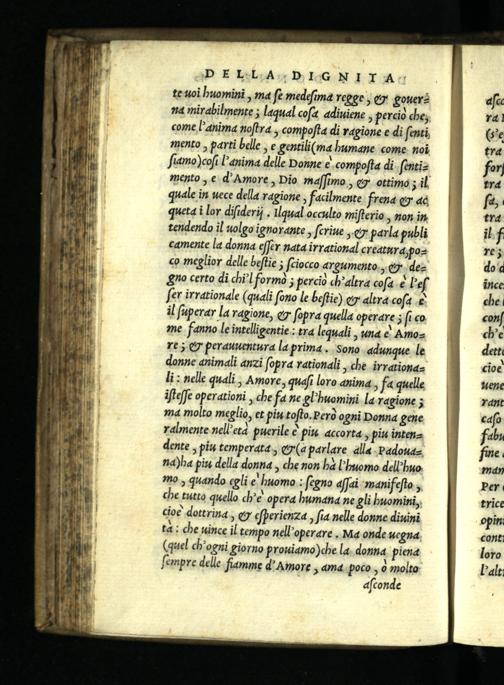 DELLA DIGNITA
te uoi huomini, ma se medesima regge, & gouer=
na mirabilmente; laqual cosa adiuiene, perciò che,
come l'anima nostra, composta di ragione e di senti
mento, parti belle, e gentili (ma humane come noi
siamo) cosi l'anima delle Donne è composta di senti=
mento, e d'Amore, Dio massimo, & ottimo; il
quale in uece della ragione, facilmente frena & ac
queta i lor disiderij. Ilqual occulto misterio, non in
tendendo il uolgo ignorante, scriue, & parla publi
camente la donna esser nata irrational creatura, po=
co meglior delle bestie; sciocco argumento, & de=
gno certo di chi'l formò; perciò ch'altra cosa è l'es
ser irrationale (quali sono le bestie) & altra cosa è
il superar la ragione, & sopra quella operare; si co
me fanno le intelligentie: tra lequali, una è Amo=
re; & perauuentura la prima. Sono adunque le
donne animali anzi sopra rationali, che irrationa=
li: nelle quali, Amore, quasi loro anima, fa quelle
istesse operationi, che fa ne gl'huomini la ragione;
ma molto meglio, et piu tosto. Però ogni Donna gene
ralmente nell'età puerile è piu accorta, piu inten=
dente, piu temperata, & (a parlare alla Padoua=
na) ha piu della donna, che non hà l'huomo dell'huo
mo, quando egli è huomo: segno assai manifesto,
che tutto quello ch'è opera humana ne gli huomini,
cioè dottrina, & esperienza, sia nelle donne diuini
tà: che uince il tempo nell'operare. Ma onde uegna
(quel ch'ogni giorno prouiamo) che la donna piena
sempre delle fiamme d'Amore, ama poco, ò molto
asconde
asco
ra
(s'e
tra
forse
tra
sa,
tra
il f
re;
do
ince
che
cons
ch'e
dett
cioè
uene
rant
caso
fabu
fine
man
Per
trice
opin
cont
loro
l'alt